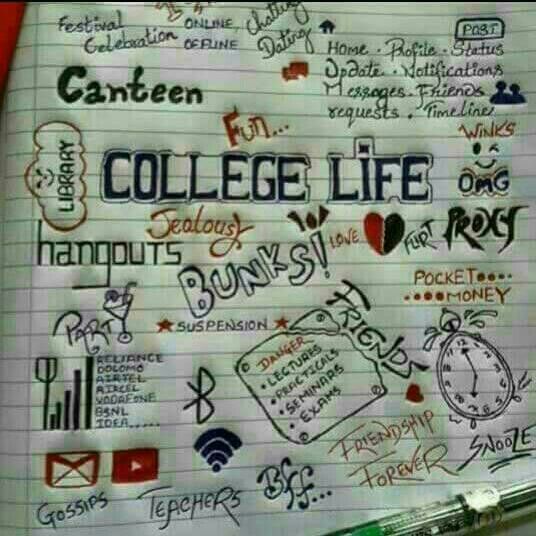 Festival
Celebration
ONLINE,
OFFLINE
Chatting
Dating
POST
Home . Profile . Status
Update . Notifications
Messages . Friends
requests . Timeline
Canteen
Fun...
WINKS
LIBRARY
COLLEGE LIFE
OMG
Jealousy
LOVE
FLIRT
PROXY
hangouts
BUNKS!
POCKET....
....MONEY
PARTY
SUSPENSION
FRIENDS
DANGER
• LECTURES
• PRACTICALS
• SEMINARS
• EXAMS
RELIANCE
DOCOMO
AIRTEL
AIRCEL
VODAFONE
BSNL
IDEA.....
FRIENDSHIP
FOREVER
SNOOZE
GOSSIPS
TEACHERS
Bff...